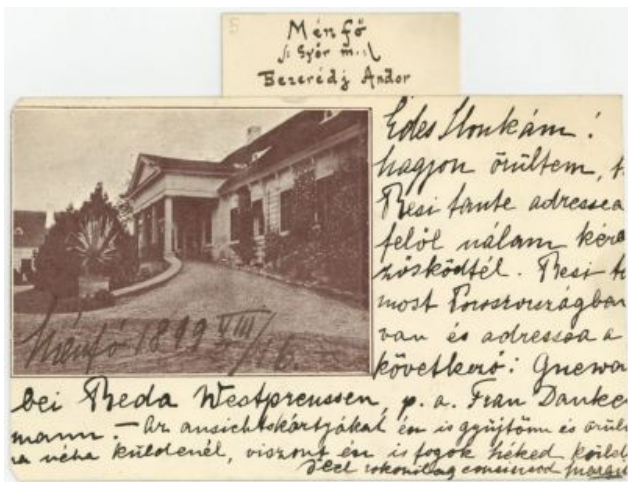 5
Ménfő
/: Győr m. :/
Bezerédj Andor
Édes Ilonkám!
nagyon örültem, 
Resi tante adressea
felől nálam kére
zősködtél. Resi t
most Poroszországban
van és adressea a
következő: Gnewa
Ménfő 1899 VIII/16.
bei Rheda Westpreussen, p. a. Frau Dancke
mann. – Az ansichtskártyákat én is gyűjtöm és örül
ha néha küldenél, viszont én is fogok néked küld